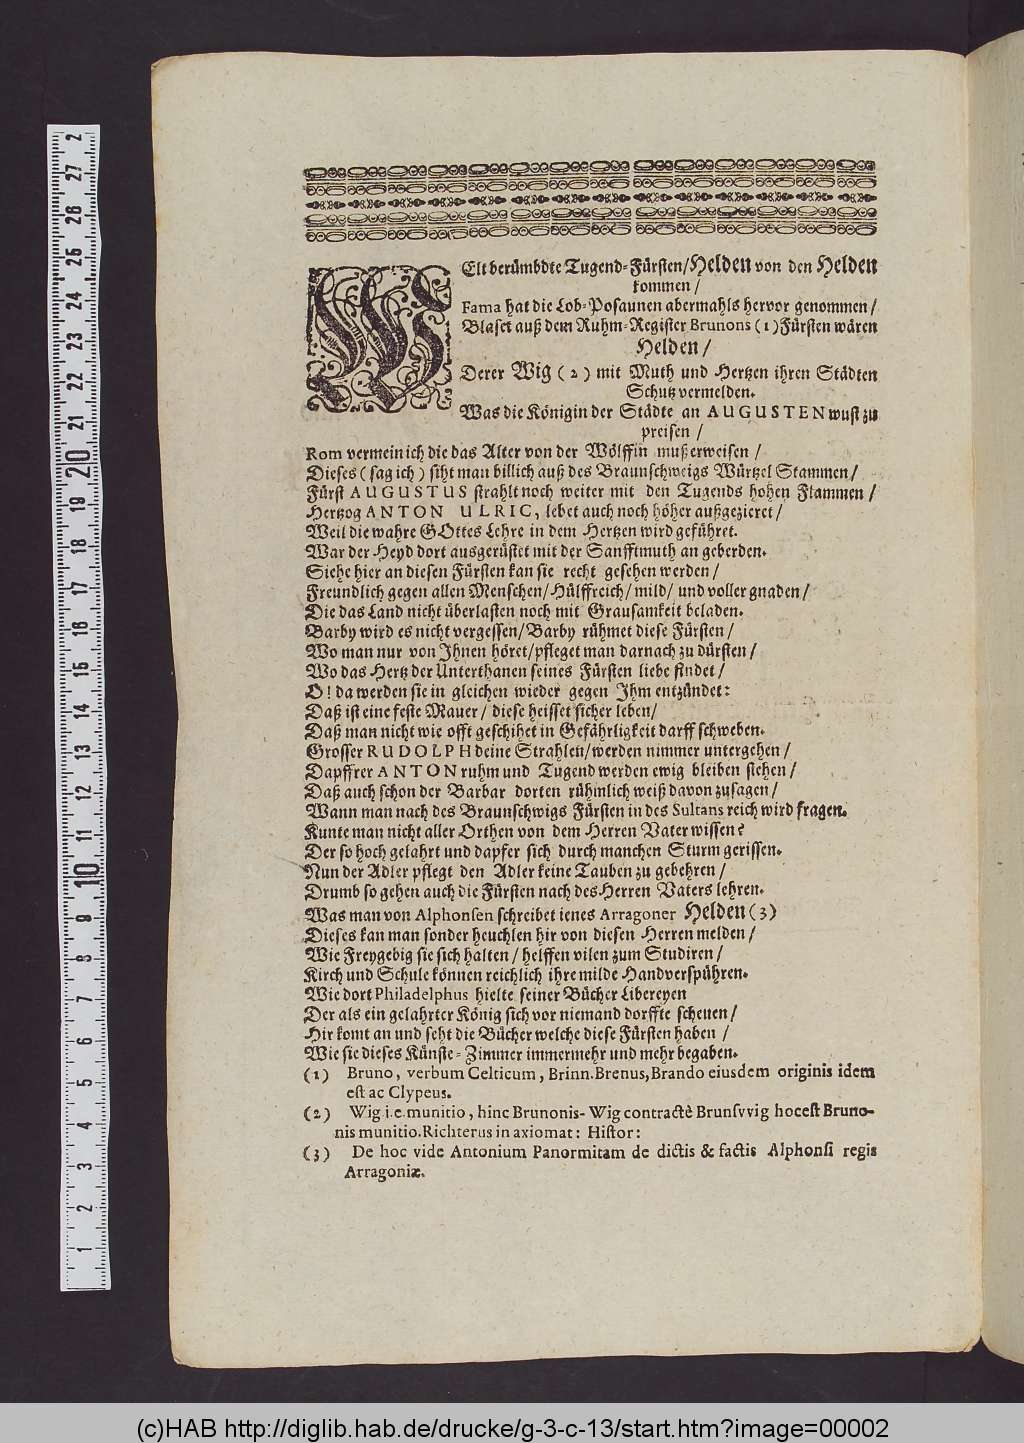 WElt berümbdte Tugend-Fürsten/Helden von den Helden
kommen/
Fama hat die Lob-Posaunen abermahls hervor genommen/
Blaset auß dem Ruhm-Register Brunons (1) Fürsten wären
Helden/
Derer Wig (2) mit Muth und Hertzen ihren Städten
Schutz vermelden.
Was die Königin der Städte an AUGUSTEN wust zu
preisen/
Rom vermein ich die das Alter von der Wölffin muß erweisen/
Dieses (sag ich) siht man billich auß des Braunschweigs Würtzel Stammen/
Fürst AUGUSTUS strahlt noch weiter mit den Tugends hohen Flammen/
Hertzog ANTON ULRIC, lebet auch noch höher außgezieret/
Weil die wahre GOttes Lehre in dem Hertzen wird geführet.
War der Heyd dort ausgerüstet mit der Sanfftmuth an geberden.
Siehe hier an diesen Fürsten kan sie recht gesehen werden/
Freundlich gegen allen Menschen/Hülffreich/mild/und voller gnaden/
Die das Land nicht überlasten noch mit Grausamkeit beladen.
Barby wird es nicht vergessen/Barby rühmet diese Fürsten/
Wo man nur von Ihnen höret/pfleget man darnach zu dürsten/
Wo das Hertz der Unterthanen seines Fürsten liebe findet/
O! da werden sie in gleichen wieder gegen Ihm entzündet:
Daß ist eine feste Mauer/ diese heisset sicher leben/
Daß man nicht wie offt geschihet in Gefährligkeit darff schweben.
Grosser RUDOLPH deine Strahlen/werden nimmer untergehen/
Dapffrer ANTON ruhm und Tugend werden ewig bleiben stehen/
Daß auch schon der Barbar dorten rühmlich weiß davon zusagen/
Wann man nach des Braunschwigs Fürsten in des Sultans reich wird fragen.
Kunte man nicht aller Orthen von dem Herren Vater wissen?
Der so hoch gelahrt und dapfer sich durch manchen Sturm gerissen.
Nun der Adler pflegt den Adler keine Tauben zu gebehren/
Drumb so gehen auch die Fürsten nach des Herren Vaters lehren.
Was man von Alphonsen schreibet ienes Arragoner Helden (3)
Dieses kan man sonder heuchlen hir von diesen Herren melden/
Wie Freygebig sie sich halten/ helffen vilen zum Studiren/
Kirch und Schule können reichlich ihre milde Hand verspühren.
Wie dort Philadelphus hielte seiner Bücher Libereyen
Der als ein gelahrter König sich vor niemand dorffte scheuen/
Hir komt an und seht die Bücher welche diese Fürsten haben/
Wie sie dieses Künste-Zimmer immermehr und mehr begaben.
(1) Bruno, verbum Celticum, Brinn. Brenus, Brando eiusdem originis idem
est ac Clypeus.
(2) Wig i.e. munitio, hinc Brunonis-Wig contractè Brunsvvig hoc est Bruno-
nis munitio. Richterus in axiomat: Histor:
(3) De hoc vide Antonium Panormitam de dictis & factis Alphonsi regis
Arragoniæ.
(c)HAB http://diglib.hab.de/drucke/g-3-c-13/start.htm?image=00002
1 2 3 4 5 6 7 8 9 10 11 12 13 14 15 16 17 18 19 20 21 22 23 24 25 26 27 2